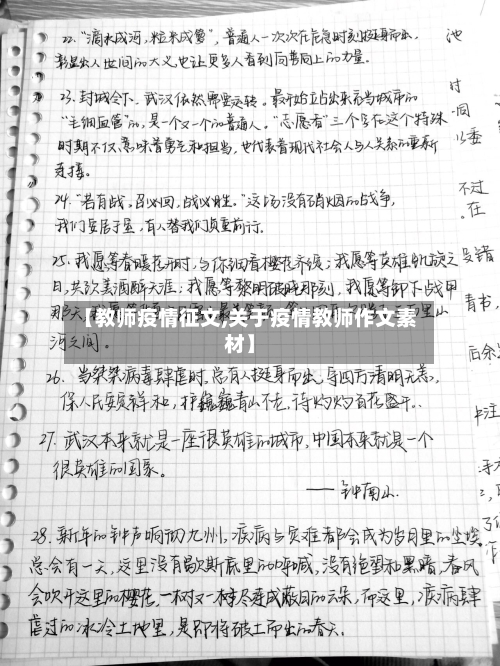 22. “滴水成河, 粒米成箩”, 普通人一次次在危急时刻挺身而出,
彰显出人世间的大义, 也让更多人看到向善向上的力量。
23. 封城令下, 武汉依然需要运转。最开始立即站出来充当城市的
“毛细血管”的, 是一个又一个的普通人。“志愿者”三个字在这个特殊
时期不仅意味着勇气和担当, 也代表着现代社会人与人关系的重新
连接。
24. “若有战。召必回, 战必胜。”这场没有硝烟的战争,
我们安居于室, 有人替我们负重前行。
25. 我愿等春暖花开时, 与你细看樱花齐绽; 我愿等英雄凯旋之
日, 共饮美酒醉天涯; 我愿等黎明破晓那刻, 我愿等卸下战甲
那天
河之间。
【教师疫情征文,关于疫情教师作文素
材】
26. 当桀桀病毒肆虐时, 总有人挺身而出, 守四方清明无恙,
保人民安寧祥和, 护巍巍青山不老, 待灼灼百花盛开..
27. 武汉本来就是一座很英雄的城市, 中国本来就是一个
很英雄的国家。
——钟南山
28. 新年的钟声响彻九州, 疾病与灾难都会成为岁月里的尘埃
总会有一天, 这里没有歇斯底里的呼喊, 没有绝望和黑暗, 春风
会吹开这里的樱花, 一树又一树连成蔽日的云朵, 而这里, 疾病肆
虐过的冰冷土地里, 是即将破土而出的春天。
池
时
同
以委
不过
。在
没错
青书,
后余